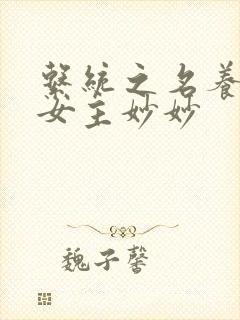 繫統之名養
女主妙妙
魏子馨